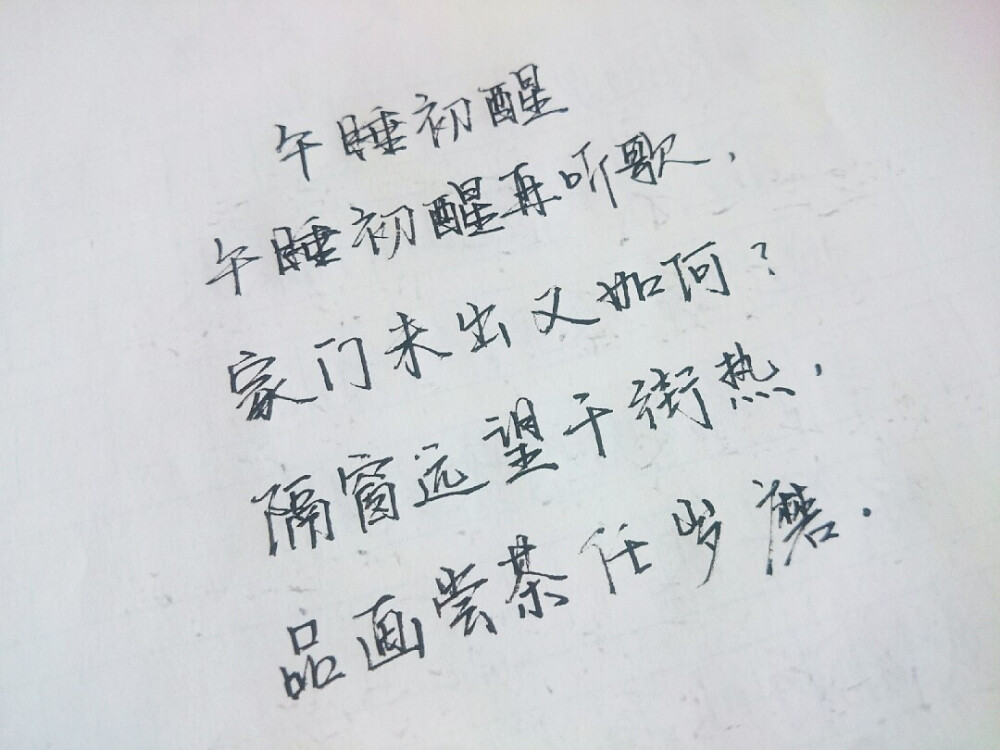 午睡初醒
午睡初醒再听歌，
家门未出又如何？
隔窗远望千街热，
品画尝茶任岁磨．